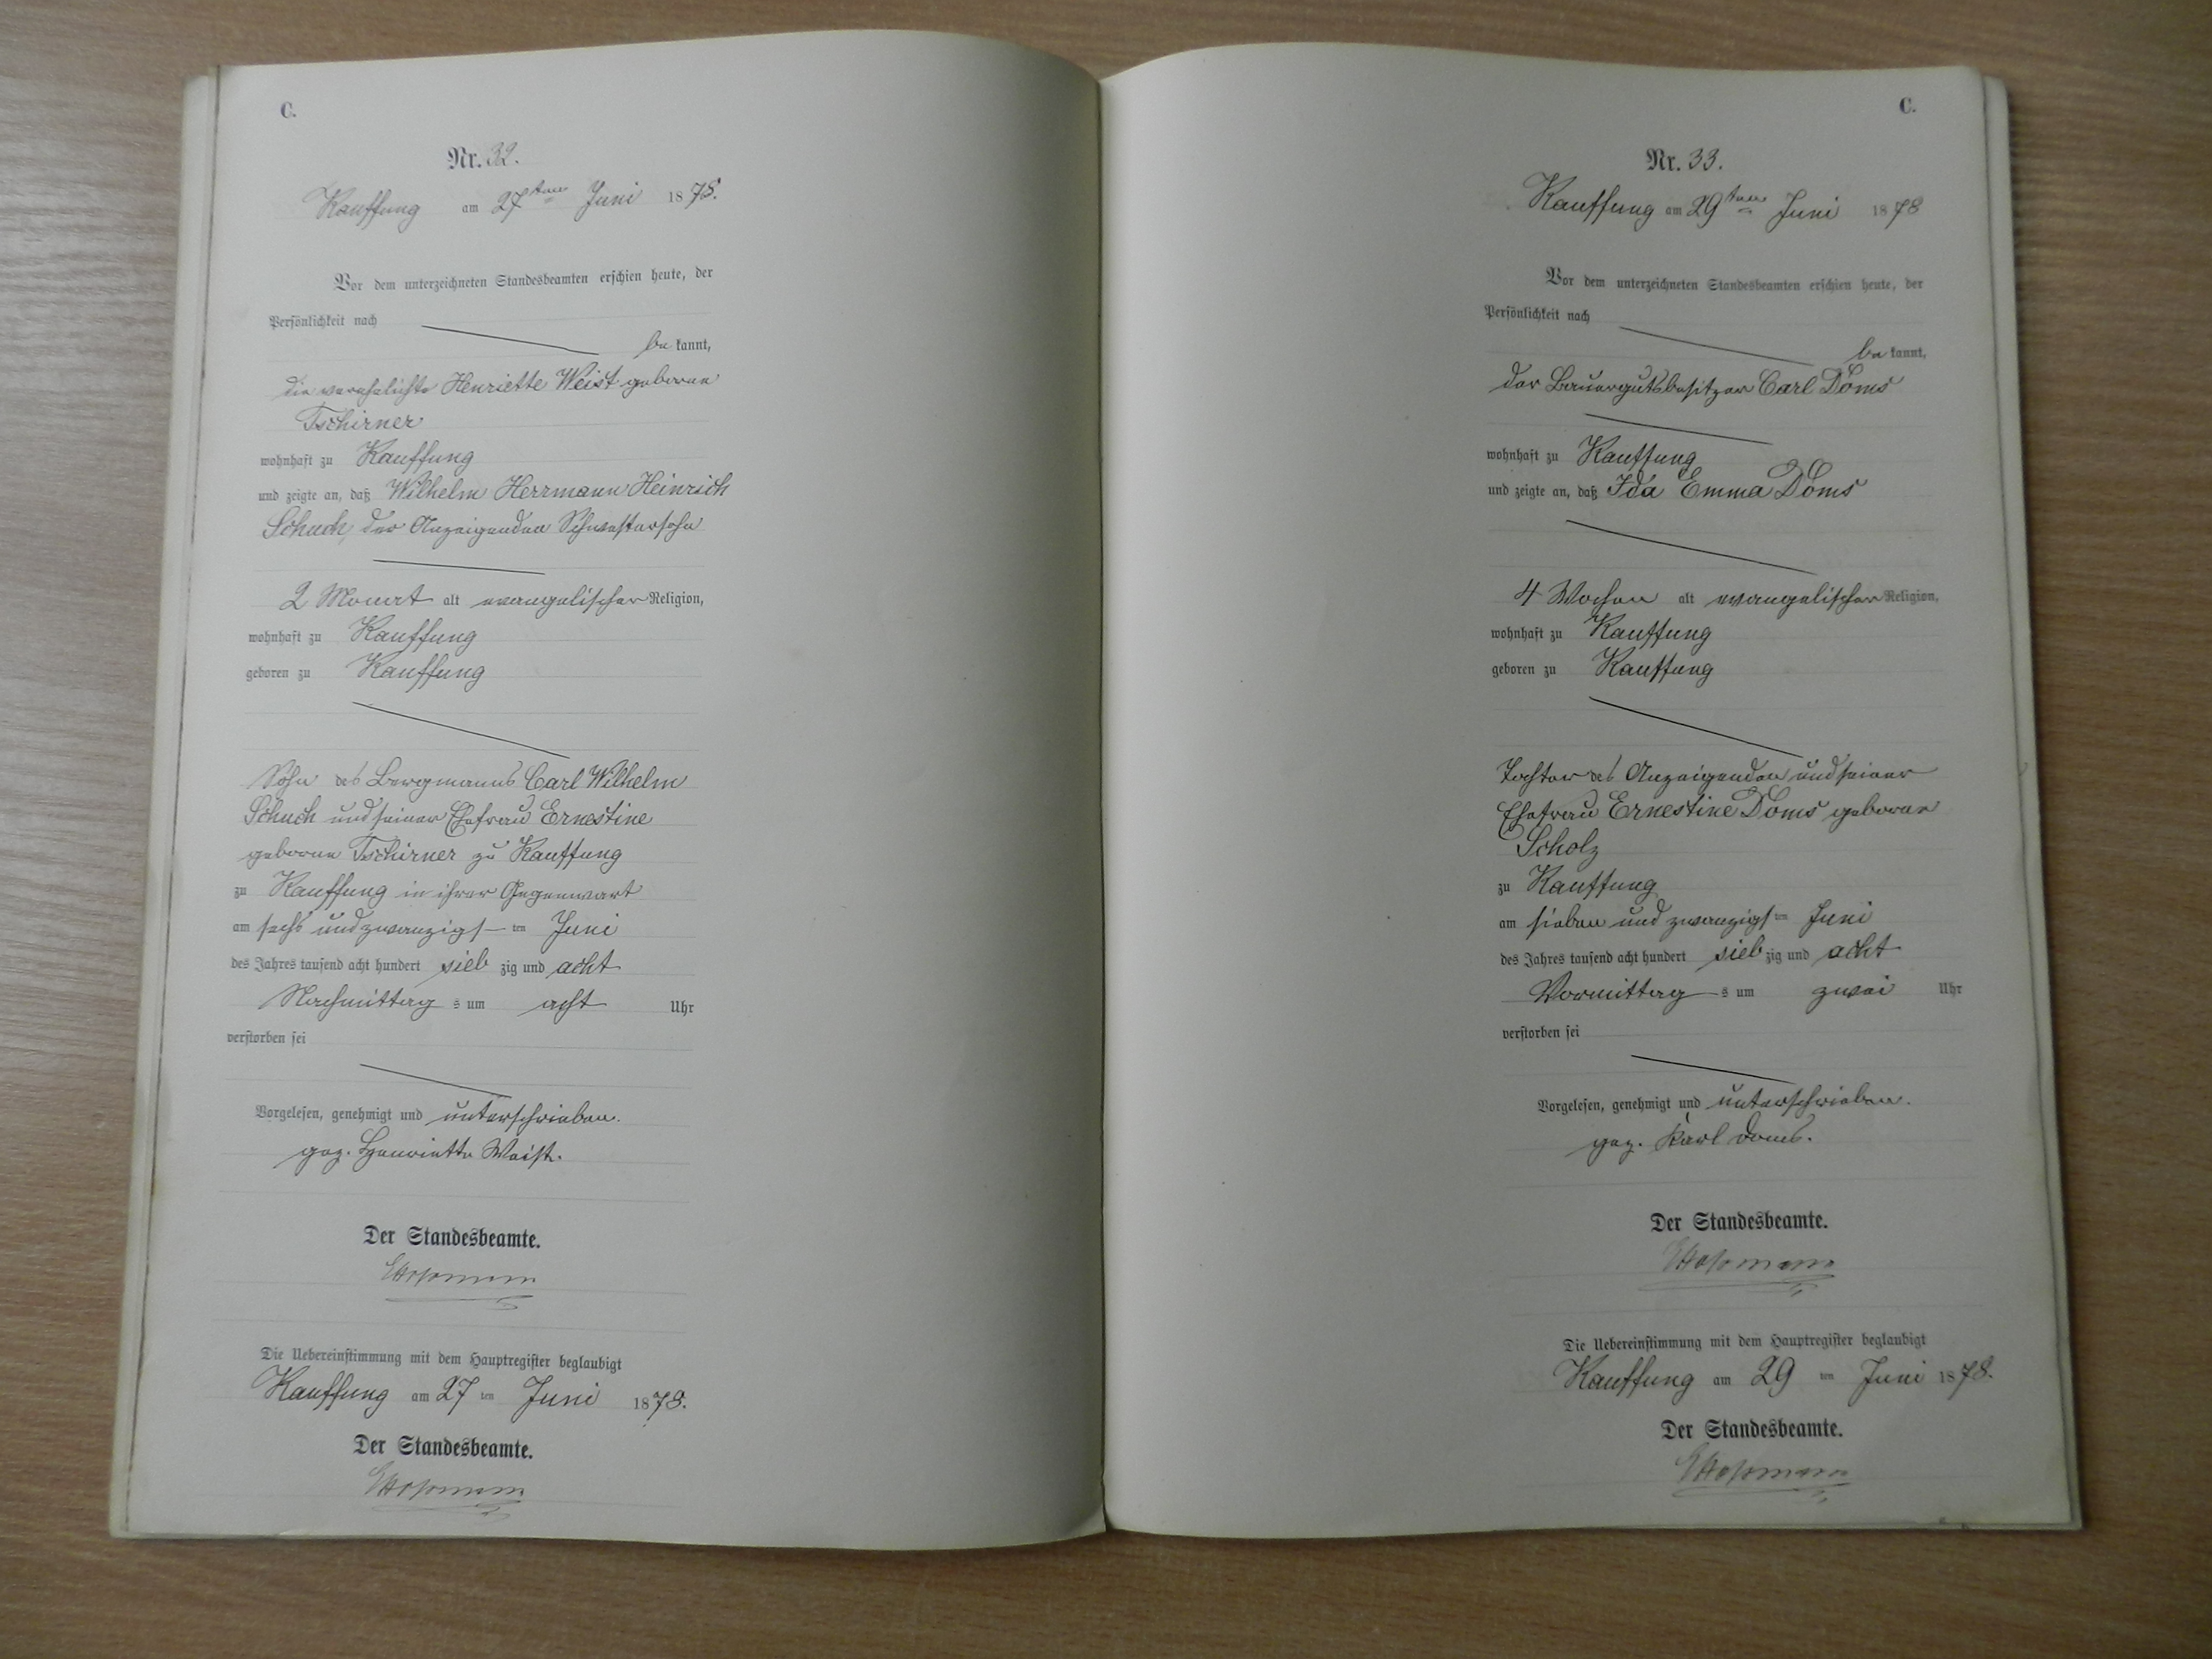 C.
Nr. 32.
Kauffung am 27ten Juni 1878.
Vor dem unterzeichneten Standesbeamten erschien heute, der
Persönlichkeit nach
be kannt,
die verehelichte Henriette Weist geborne
Tschirner
wohnhaft zu Kauffung
und zeigte an, daß Wilhelm Herrmann Heinrich
Schuch, der Anzeigenden Schwestersohn
2 Monat alt evangelischer Religion,
wohnhaft zu Kauffung
geboren zu Kauffung
Sohn des Bergmanns Carl Wilhelm
Schuch und seiner Ehefrau Ernestine
geborne Tschirner zu Kauffung
zu Kauffung in ihrer Gegenwart
am sechs und zwanzigsten Juni
des Jahres tausend acht hundert sieb zig und acht
Nachmittag s um acht Uhr
verstorben sei
Vorgelesen, genehmigt und unterschrieben.
gez. Henriette Weist.
Der Standesbeamte.
Die Uebereinstimmung mit dem Hauptregister beglaubigt
Kauffung am 27 ten Juni 1878.
Der Standesbeamte.
C.
Nr. 33.
Kauffung am 29ten Juni 1878
Vor dem unterzeichneten Standesbeamten erschien heute, der
Persönlichkeit nach
be kannt,
der Bauergutsbesitzer Carl Doms
wohnhaft zu Kauffung
und zeigte an, daß Ida Emma Doms
4 Wochen alt evangelischer Religion,
wohnhaft zu Kauffung
geboren zu Kauffung
Tochter des Anzeigenden und seiner
Ehefrau Ernestine Doms geborne
Scholz
zu Kauffung
am sieben und zwanzigsten Juni
des Jahres tausend acht hundert sieb zig und acht
Vormittag s um zwei Uhr
verstorben sei
Vorgelesen, genehmigt und unterschrieben.
gez. Karl Doms.
Der Standesbeamte.
Die Uebereinstimmung mit dem Hauptregister beglaubigt
Kauffung am 29 ten Juni 1878.
Der Standesbeamte.